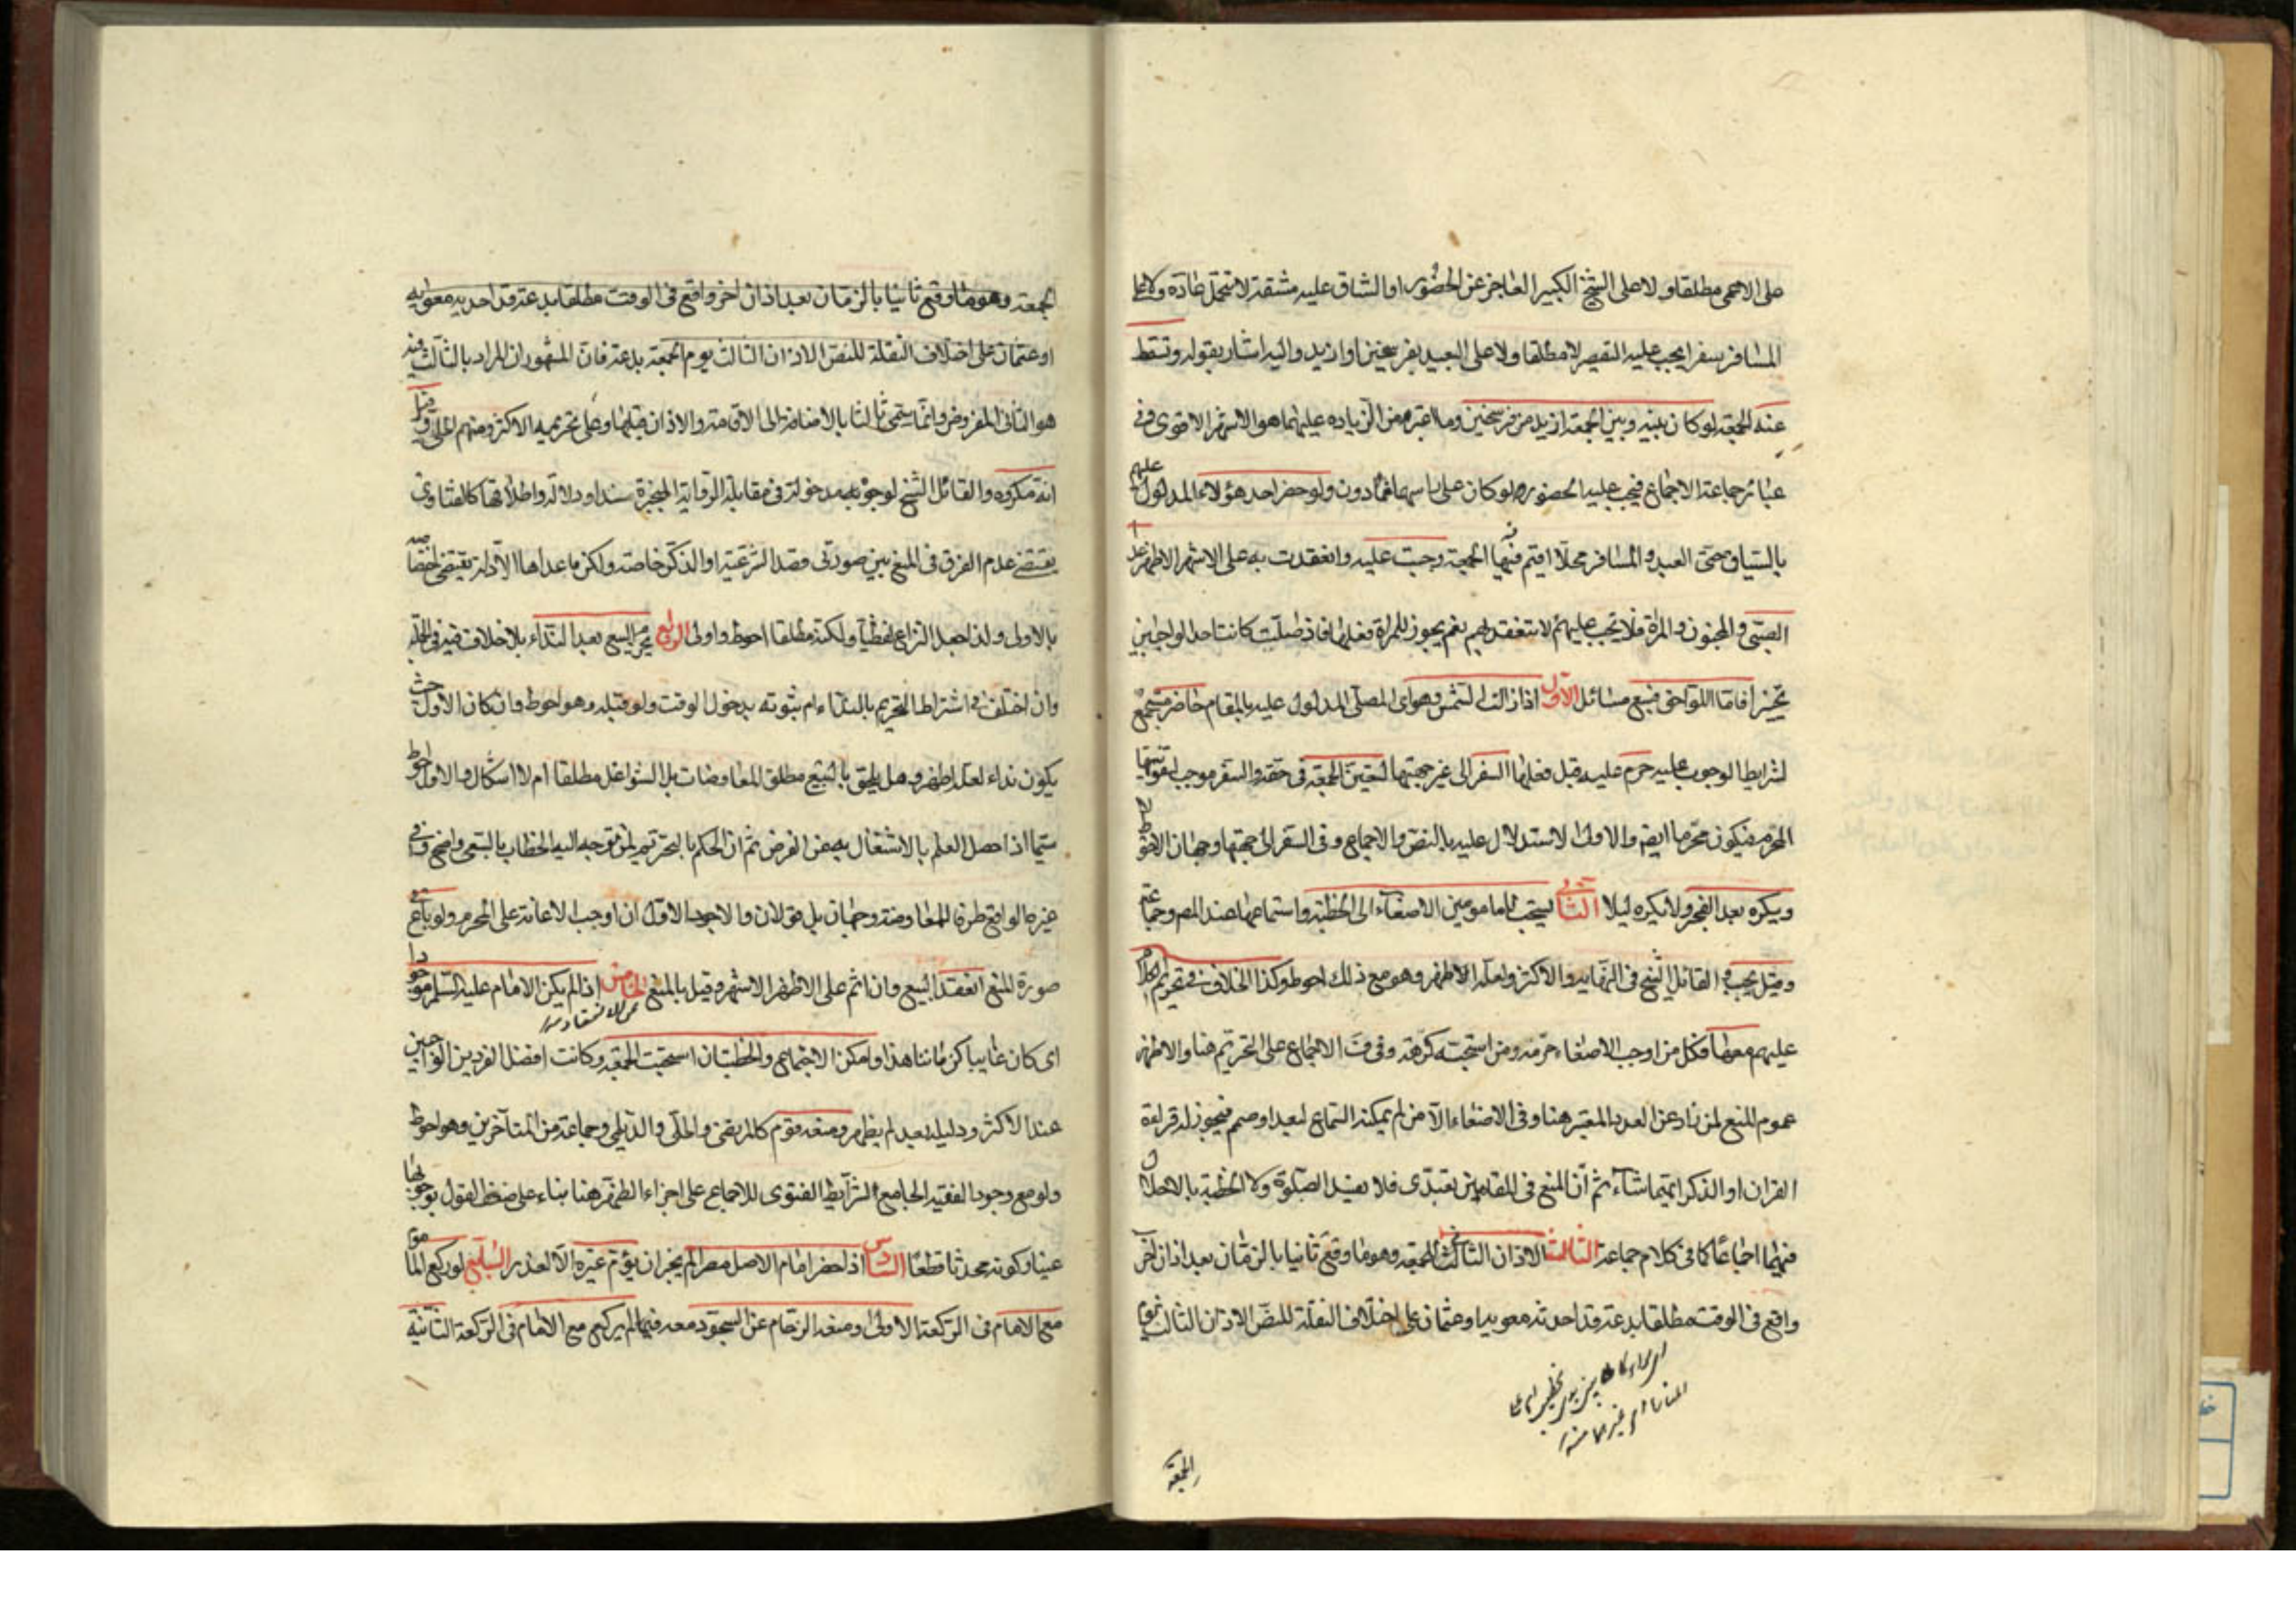 على الاعمى مطلقا ولا على الشيخ الكبير العاجز عن الحضور او الشاق عليه مشقة لا تتحمل عادة ولا على
المسافر سفرا يجب عليه التقصير لا مطلقا ولا على البعيد بفرسخين او ازيد واليه اشار بقوله وتسقط
عنه الجمعة لو كان بينه وبين الجمعة ازيد من فرسخين وما اعتبره من الزيادة عليهما هو الاشهر الاقوى وفى
عبائر جماعة الاجماع فيجب عليه الحضور لو كان على راسهما فما دون ولو حضر احد هؤلاء المدلول عليهم
بالسياق حتى العبد والمسافر محلا اقيم فيها الجمعة وجبت عليه وانعقدت به على الاشهر الاظهر عدا
الصبى والمجنون والمراة فلا تجب عليهم لا تنعقد بهم نعم يجوز للمراة فعلها فاذ صلت كانت احد الواجبين
تخييرا واما اللواحق فسبع مسائل الاول اذا زالت الشمس وهو اى المصلى المدلول عليه بالمقام حاضر مستجمع
لشرايط الوجوب عليه حرم عليه قبل فعلها السفر الى غير جهتها لتعين الجمعة فى حقه والسفر موجب لتفويتها
المحرم فيكون محرما ايضا والاولى الاستدلال عليه بالنص والاجماع وفى السفر الى جهتها وجهان الاحوط لا
ويكره بعد الفجر ولا يكره ليلا الثانى يستحب للمامومين الاصغاء الى الخطبة واستماعها عند المص وجماعة
وقيل يجب والقائل الشيخ فى النهاية والاكثر ولعله الاظهر وهو مع ذلك احوط وكذا الخلاف فى تحريم الكلام
عليهم معها فكل من اوجب الاصغاء حرمه ومن استحبه كرهه وفى ف الاجماع على التحريم هنا والاظهر
عموم المنع لمن زاد عن العدد المعتبر هنا وفى الاصغاء الا من لم يمكنه السماع لبعد او صمم فيجوز له قراءة
القران او الذكر ايتهما شاء ثم ان المنع فى المقامين تعبدى فلا يفسد الصلوة ولا الخطبة بالاخلال
فيهما اجماعا كما فى كلام جماعة الثالث الاذان الثانى الثالث للجمعة وهو ما وقع ثانيا بالزمان بعد اذان اخر
واقع فى الوقت مطلقا بدعة قد احدثه معوية او عثمان على اختلاف النقلة للنص الاذان الثالث يوم
الجمعة
الجمعة وهو ما وقع ثانيا بالزمان بعد اذان اخر واقع فى الوقت مطلقا بدعة قد احدثه معوية
او عثمان على اختلاف النقلة للنص الاذان الثالث يوم الجمعة بدعة فان المشهور ان المراد بالثالث فيه
هو الثانى المفروض وانما سمى ثالثا بالاضافة الى الاقامة والاذان قبلها وعلى تحريمه الاكثر ومنهم الحلى وقيل
انه مكروه والقائل الشيخ لوجوه مدخولة فى مقابلة الرواية المنجبرة سندا ودلالة واطلاقها كالفتاوى
يقتضى عدم الفرق فى المنع بين صورتى قصد الشرعية او الذكر خاصة ولكن ما عداها الادلة يقتضى اختصاصه
بالاولى ولذا جعل النزاع لفظيا ولكنه مطلقا احوط واولى الرابع يحرم البيع بعد النداء بلا خلاف فيه فى الجملة
وان اختلف فى اشتراط التحريم بالنداء ام ثبوته بدخول الوقت ولو قبله وهو احوط وان كان الاول حيث
يكون نداء لعله اظهر وهل يلحق بالبيع مطلق المعاوضات بل الشواغل مطلقا ام لا اشكال والاول احوط
سيما اذا حصل العلم بالاشتغال به عن الفرض ثم ان الحكم بالتحريم لمن توجه اليه الخطاب بالسعى واضح وفى
غيره الواقع طرف المعاوضة وجهان بل قولان والاجود الاول ان اوجب الاعانة على المحرم ولو باع فى
صورة المنع انعقد البيع وان اثم على الاظهر الاشهر وقيل بالمنع الخامس اذا لم يكن الامام عليه السلم موجودا
اى كان غايبا كزماننا هذا وامكن الاجتماع والخطبتان استحبت الجمعة وكانت افضل الفردين الواجبين
عند الاكثر ودليله بعد لم يظهر ومنعه قوم كالمرتضى والحلى والديلمى وجماعة من المتاخرين وهو احوط
ولو مع وجود الفقيه الجامع لشرايط الفتوى للاجماع على اجزاء الظهر هنا بناء على ضعف القول بوجوبها
عينا وكونه محدثا قطعا السادس اذا حضر امام الاصل مصرا لم يجز ان يؤم غيره الا لعذر السابع لو ركع المأموم
مع الامام فى الركعة الاولى ومنعه الزحام عن السجود معه فيها لم يركع مع الامام فى الركعة الثانية